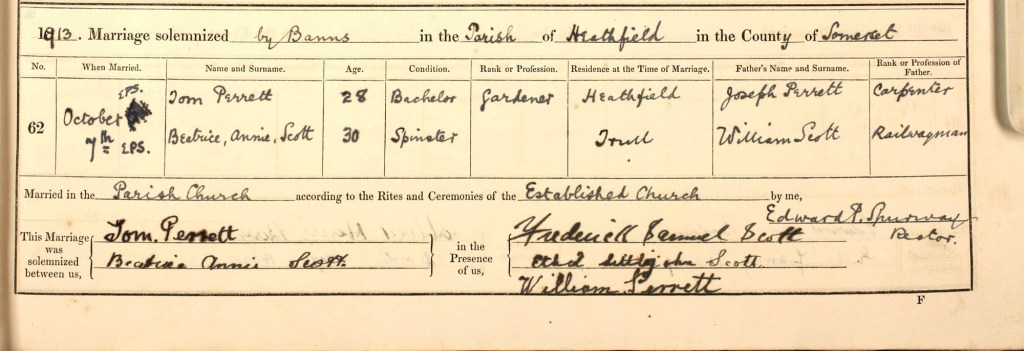 1913. Marriage solemnized by Banns in the Parish of Heathfield in the County of Somerset
No. When Married. Name and Surname. Age. Condition. Rank or Profession. Residence at the Time of Marriage. Father's Name and Surname. Rank or Profession of Father.
62
October 7th
E.P.S.
E.P.S.
Tom Perrett 28 Bachelor Gardener Heathfield Joseph Perrett Carpenter
Beatrice, Annie, Scott 30 Spinster Trull William Scott Railwayman
Married in the Parish Church according to the Rites and Ceremonies of the Established Church by me,
Edward P. Spurway
Rector.
This Marriage was solemnized between us,
Tom. Perrett
Beatrice Annie Scott
in the Presence of us,
Frederick Samuel Scott
Ethel Scott
William Perrett
F